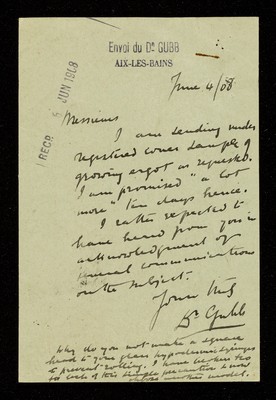 Envoi du Dr GUBB
AIX-LES-BAINS
RECD. 5 JUN 1908
June 4/08
Messieurs
I am sending under
registered cover sample of
growing ergot as requested.
I am promised "a lot
more" ten days hence.
I rather expected to
have heard from you in
acknowledgment of
several communications
on the subject.
Yours truly
Dr Gubb
Why do you not make a square
head to your glass hypodermic syringes
to prevent rolling. I have broken two
for lack of this simple precaution & now
another model.